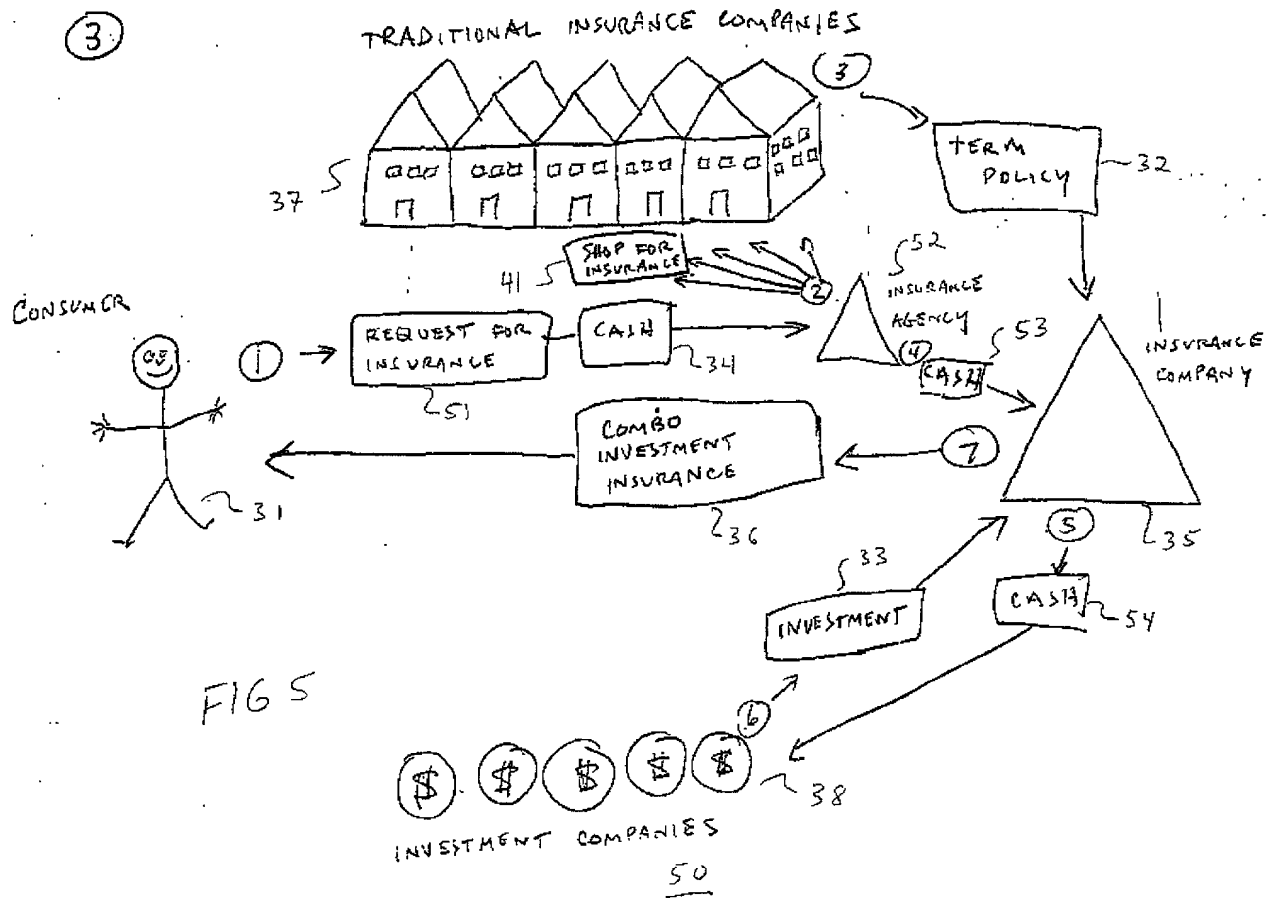 3
TRADITIONAL INSURANCE COMPANIES
3
TERM
POLICY
32
37
SHOP FOR
INSURANCE
41
2
52
INSURANCE
AGENCY
CONSUMER
1
REQUEST FOR
INSURANCE
51
CASH
34
4
53
CASH
INSURANCE
COMPANY
COMBO
INVESTMENT
INSURANCE
36
7
31
5
35
33
INVESTMENT
CASH
54
FIG 5
6
$ $ $ $ $
38
INVESTMENT COMPANIES
50